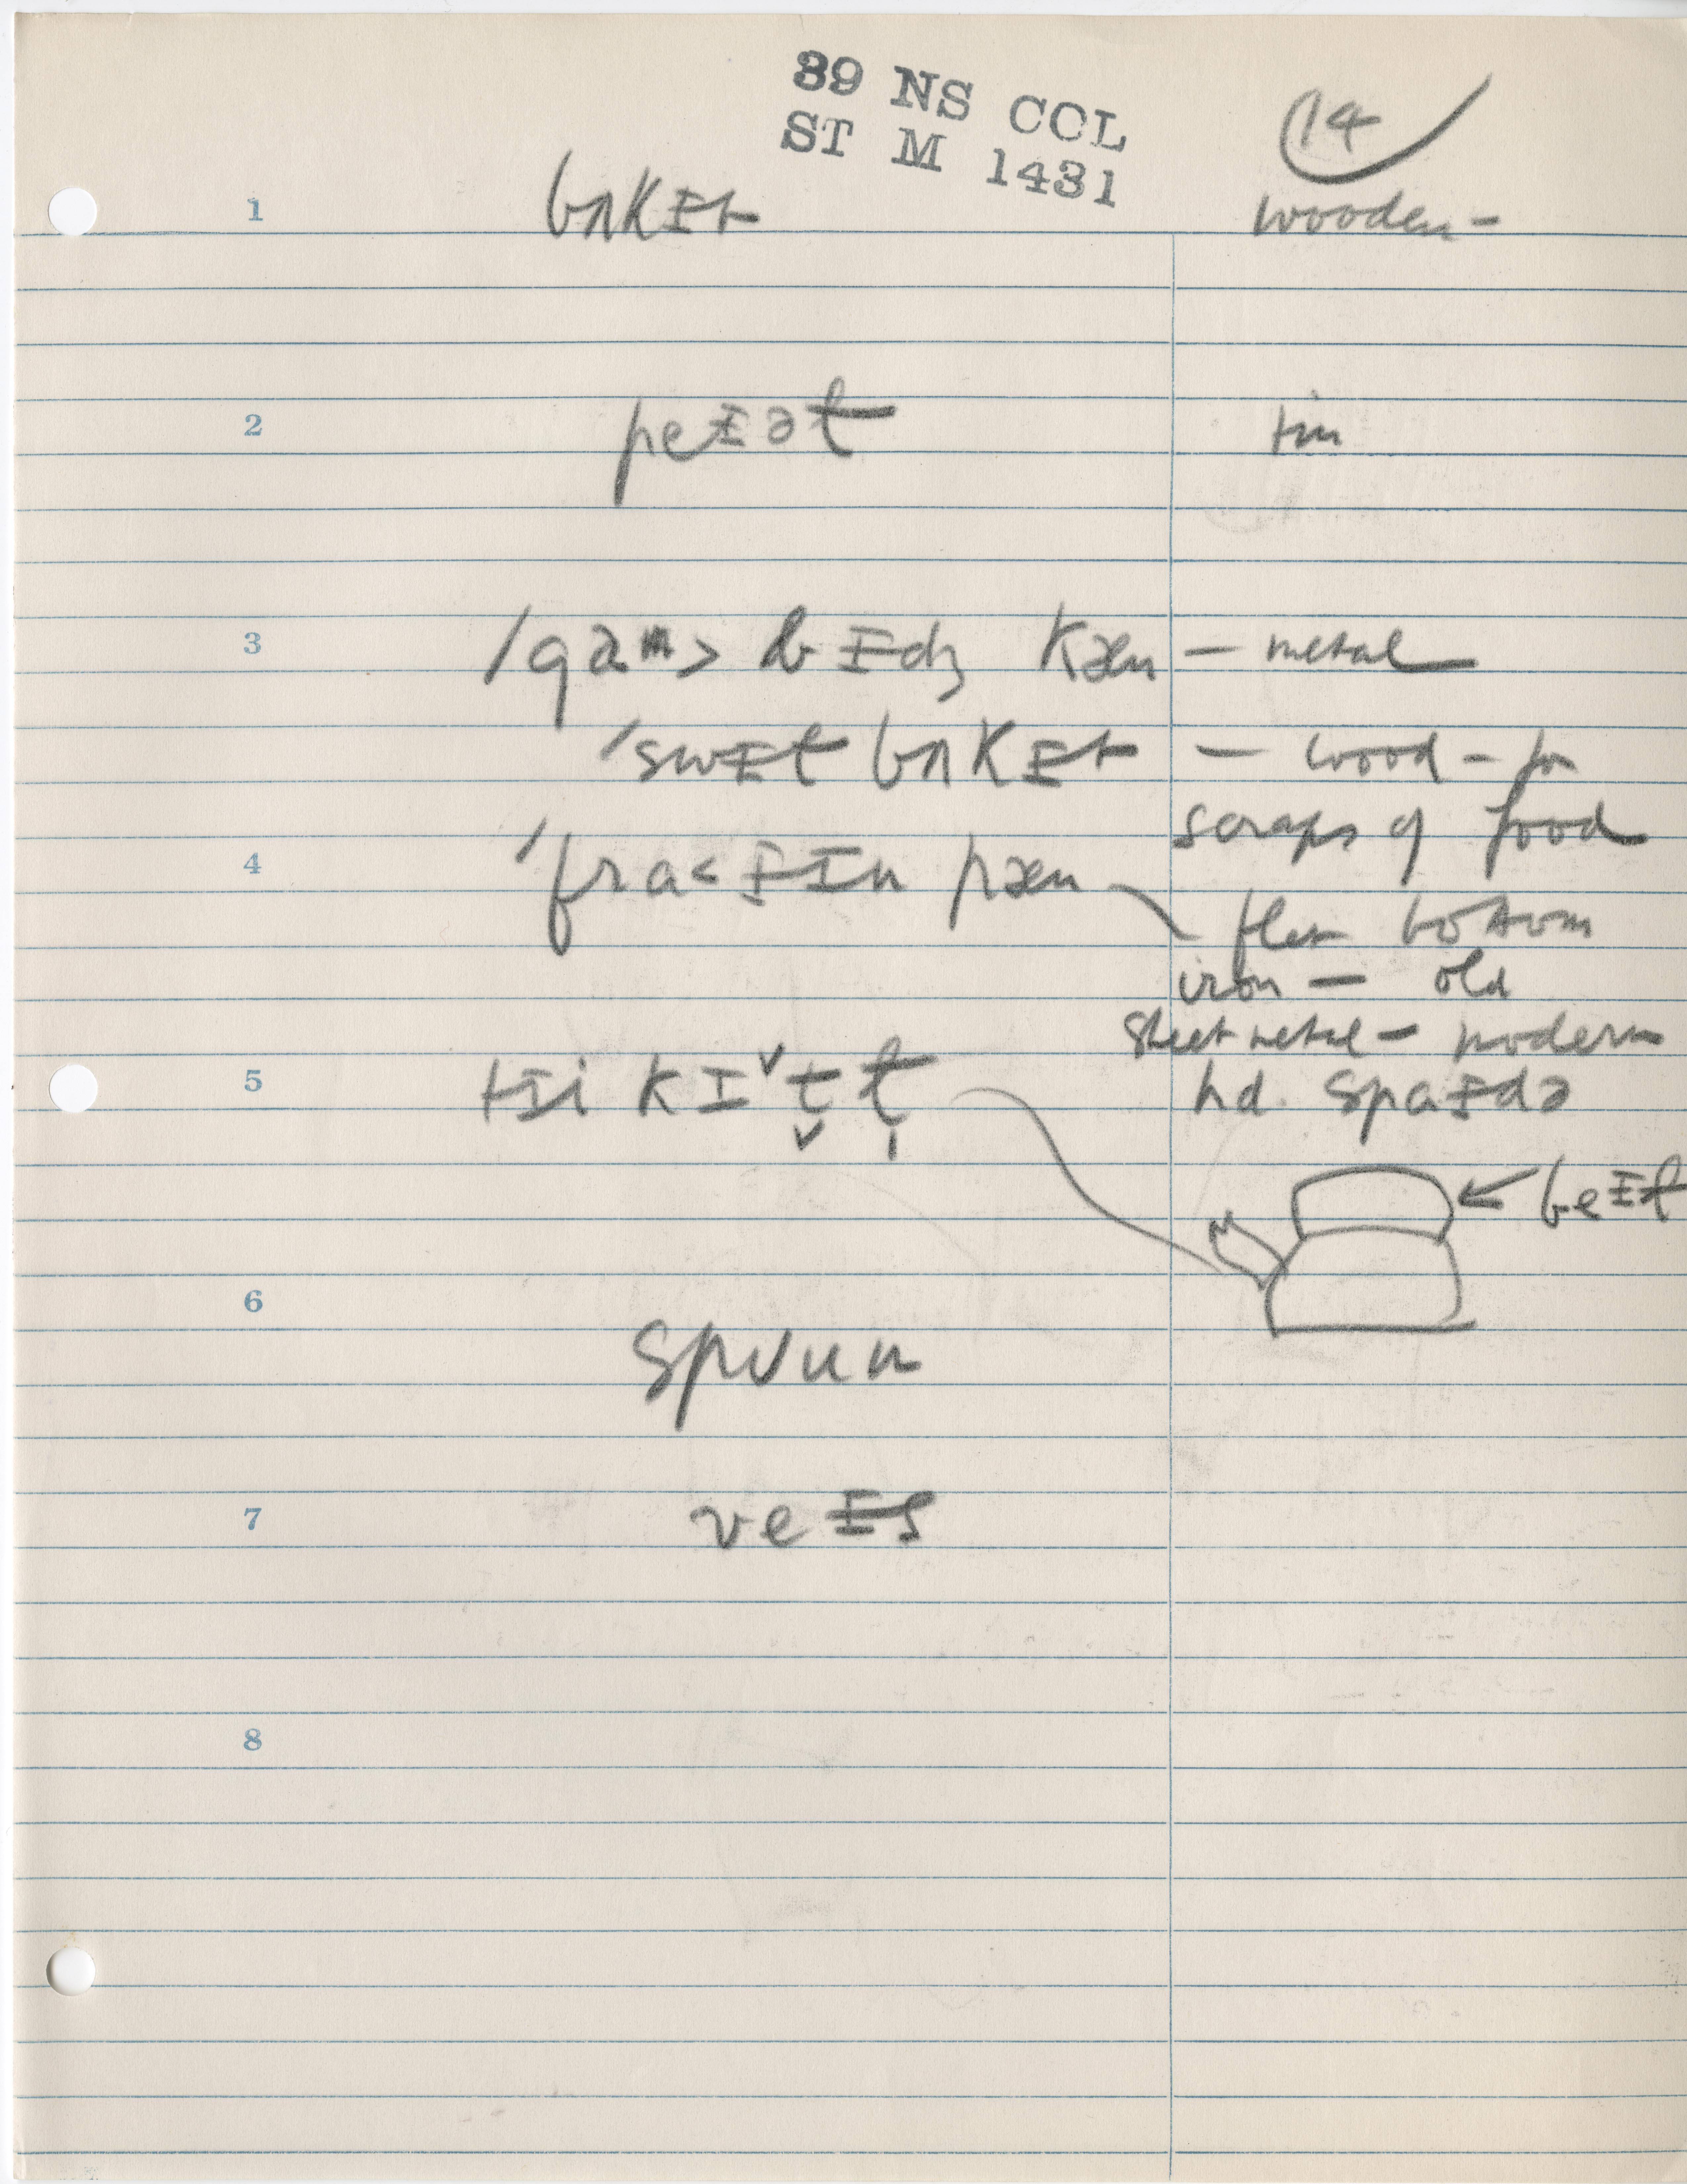 39 NS CCL
ST M 1431
14
1 bʌkᵻt wooden –
2 peᵻəɫ tin
3 ˈgɑm> bᵻdʒ kæn – metal
ˈswᵻɫ bʌkᵻt – wood – for
scraps of food
4 ˈfra<ᵻɪn pæn
flat bottom
iron – old
sheet metal – modern
hd. spaᵻdə
5 tᵻi
beᵻɫ
6 spʊun
7 veᵻs
8